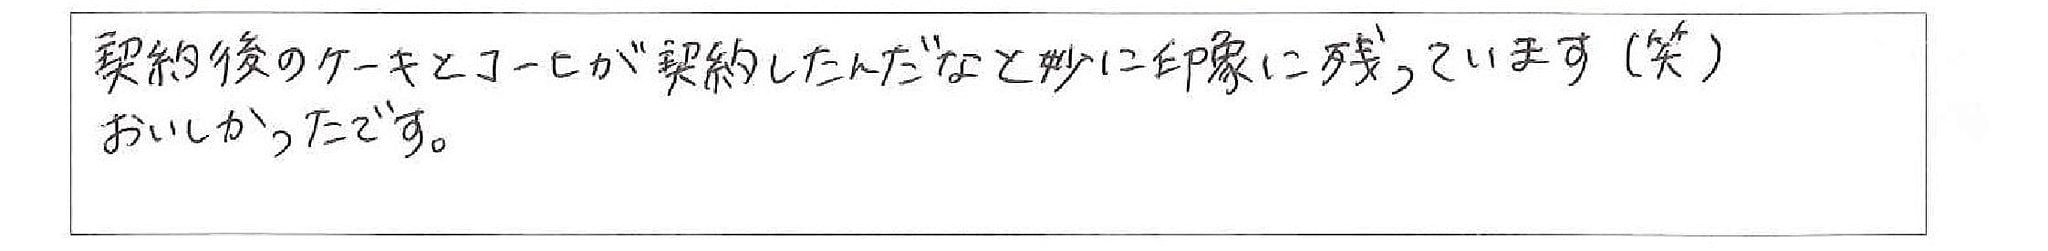 契約後のケーキとコーヒが契約したんだなと妙に印象に残っています（笑）
おいしかったです。